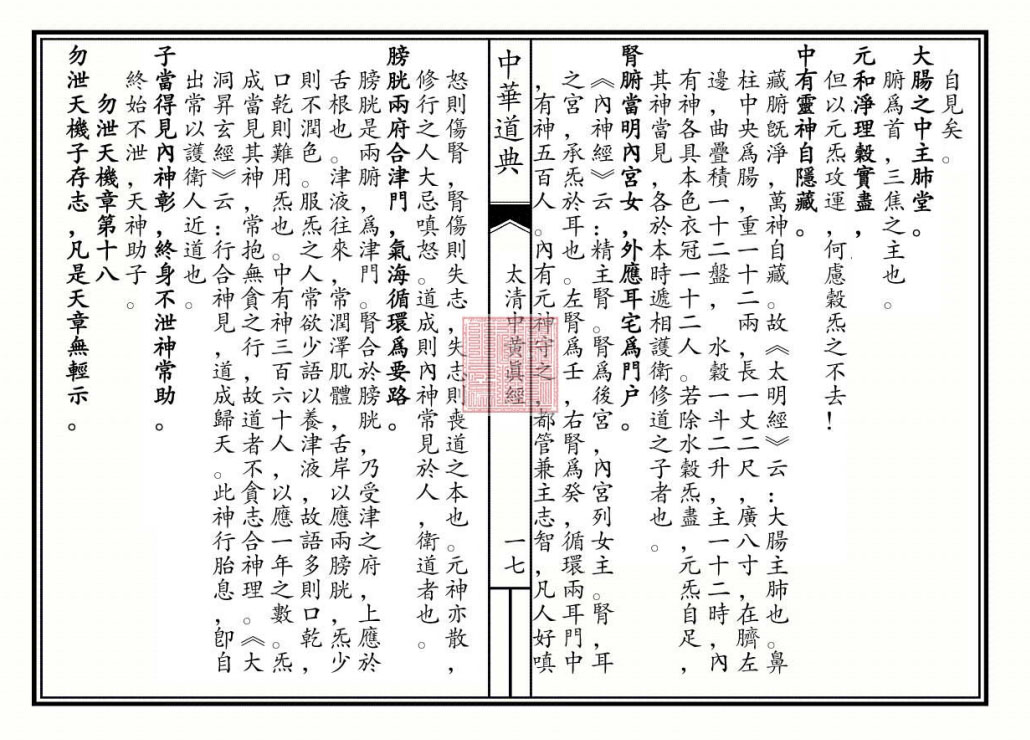 自見矣。
大腸之中主肺堂。
腑爲首，三焦之主也。
元和淨理穀實盡，
但以元炁攻運，何慮穀炁之不去！
中有靈神自隱藏。
藏腑旣淨，萬神自藏。故《太明經》云：大腸主肺也。鼻
柱中央爲腸，重一十二兩，長一丈二尺，廣八寸，在臍左
邊，曲疊積一十二盤，水穀一斗二升，主一十二時，內
有神各具本色衣冠一十二人。若除水穀炁盡，元炁自足，
其神當見，各於本時遞相護衛修道之子者也。
腎腑當明內宮女，外應耳宅爲門户。
《內神經》云：精主腎。腎爲後宮，內宮列女主。腎，耳
之宮，承炁於耳也。左腎爲壬，右腎爲癸，循環兩耳門中
，有神五百人。內有元神守之，都管兼主志智，凡人好嗔
中華道典
太清中黃眞經
一七
怒則傷腎，腎傷則失志，失志則喪道之本也。元神亦散，
修行之人大忌嗔怒。道成則內神常見於人，衛道者也。
膀胱兩府合津門，氣海循環爲要路。
膀胱是兩腑，爲津門。腎合於膀胱，乃受津之府，上應於
舌根也。津液往來，常潤澤肌體，舌岸以應兩膀胱，炁少
則不潤色。服炁之人常欲少語以養津液，故語多則口乾，
口乾則難用炁也。中有神三百六十人，以應一年之數。炁
成當見其神，常抱無貪之行，故道者不貪志合神理。《大
洞昇玄經》云：行合神見，道成歸天。此神行胎息，卽自
出常以護衛人近道也。
子當得見內神彰，終身不泄神常助。
終始不泄，天神助子。
勿泄天機章第十八
勿泄天機子存志，凡是天章無輕示。